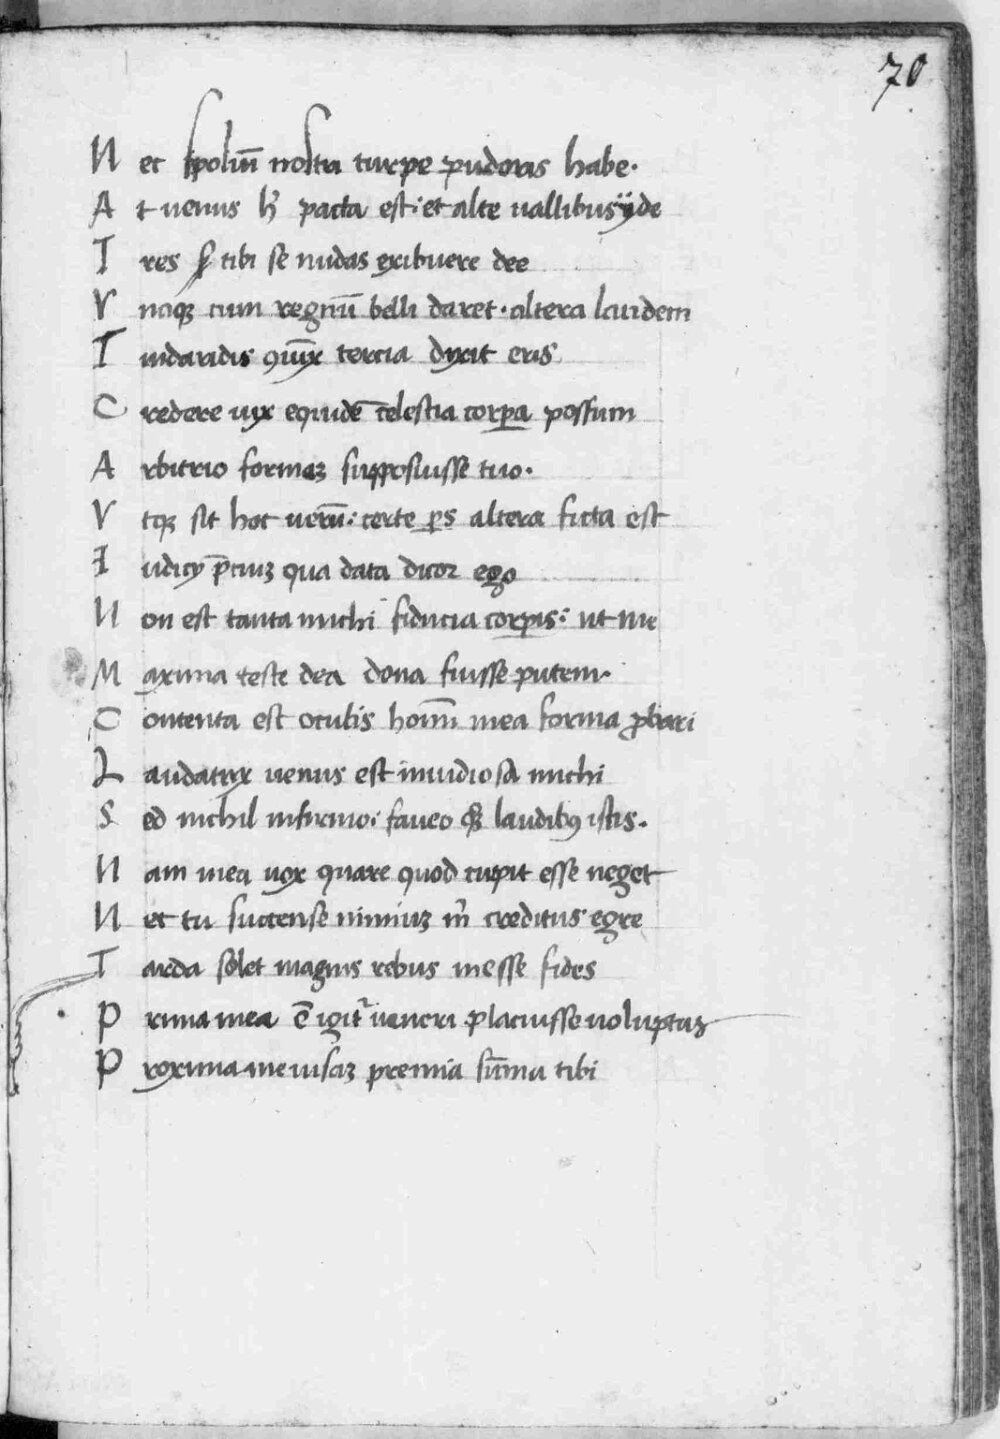 70
N ec spoliũ nostri turpe pudoris habe.
A t uenus h̃ pacta est: et alte uallibus yde
T res s̃ tibi se nudas exibuere dee
V naqꝫ cum regnũ belli daret. altera laudem
T indaridis ꝯiũx tercia dyxit eris
C redere uyx equidẽ celestia corꝑa possum
A rbitrio formaꝫ supposuisse tuo.
V tqꝫ sit hoc uerũ: certe ꝑs altera ficta est
I udicy p̃ciuꝫ qua data dicor ego
N on est tanta michi fiducia corꝑis: ut me
M axima teste dea dona fuisse putem.
C ontenta est oculis hoĩm mea forma ꝓbari
L audatryx uenus est inuidiosa michi
S ed nichil infirmo: faueo qꝫ laudibꝰ istis.
N am mea uox quare quod cupit esse neget
N ec tu succense nimiuꝫ m̃ creditus egre
T arda solet magnis rebus inesse fides
P rima mea ẽ igit̃ ueneri placuisse uoluptas
P roxima me uisaꝫ premia sũma tibi